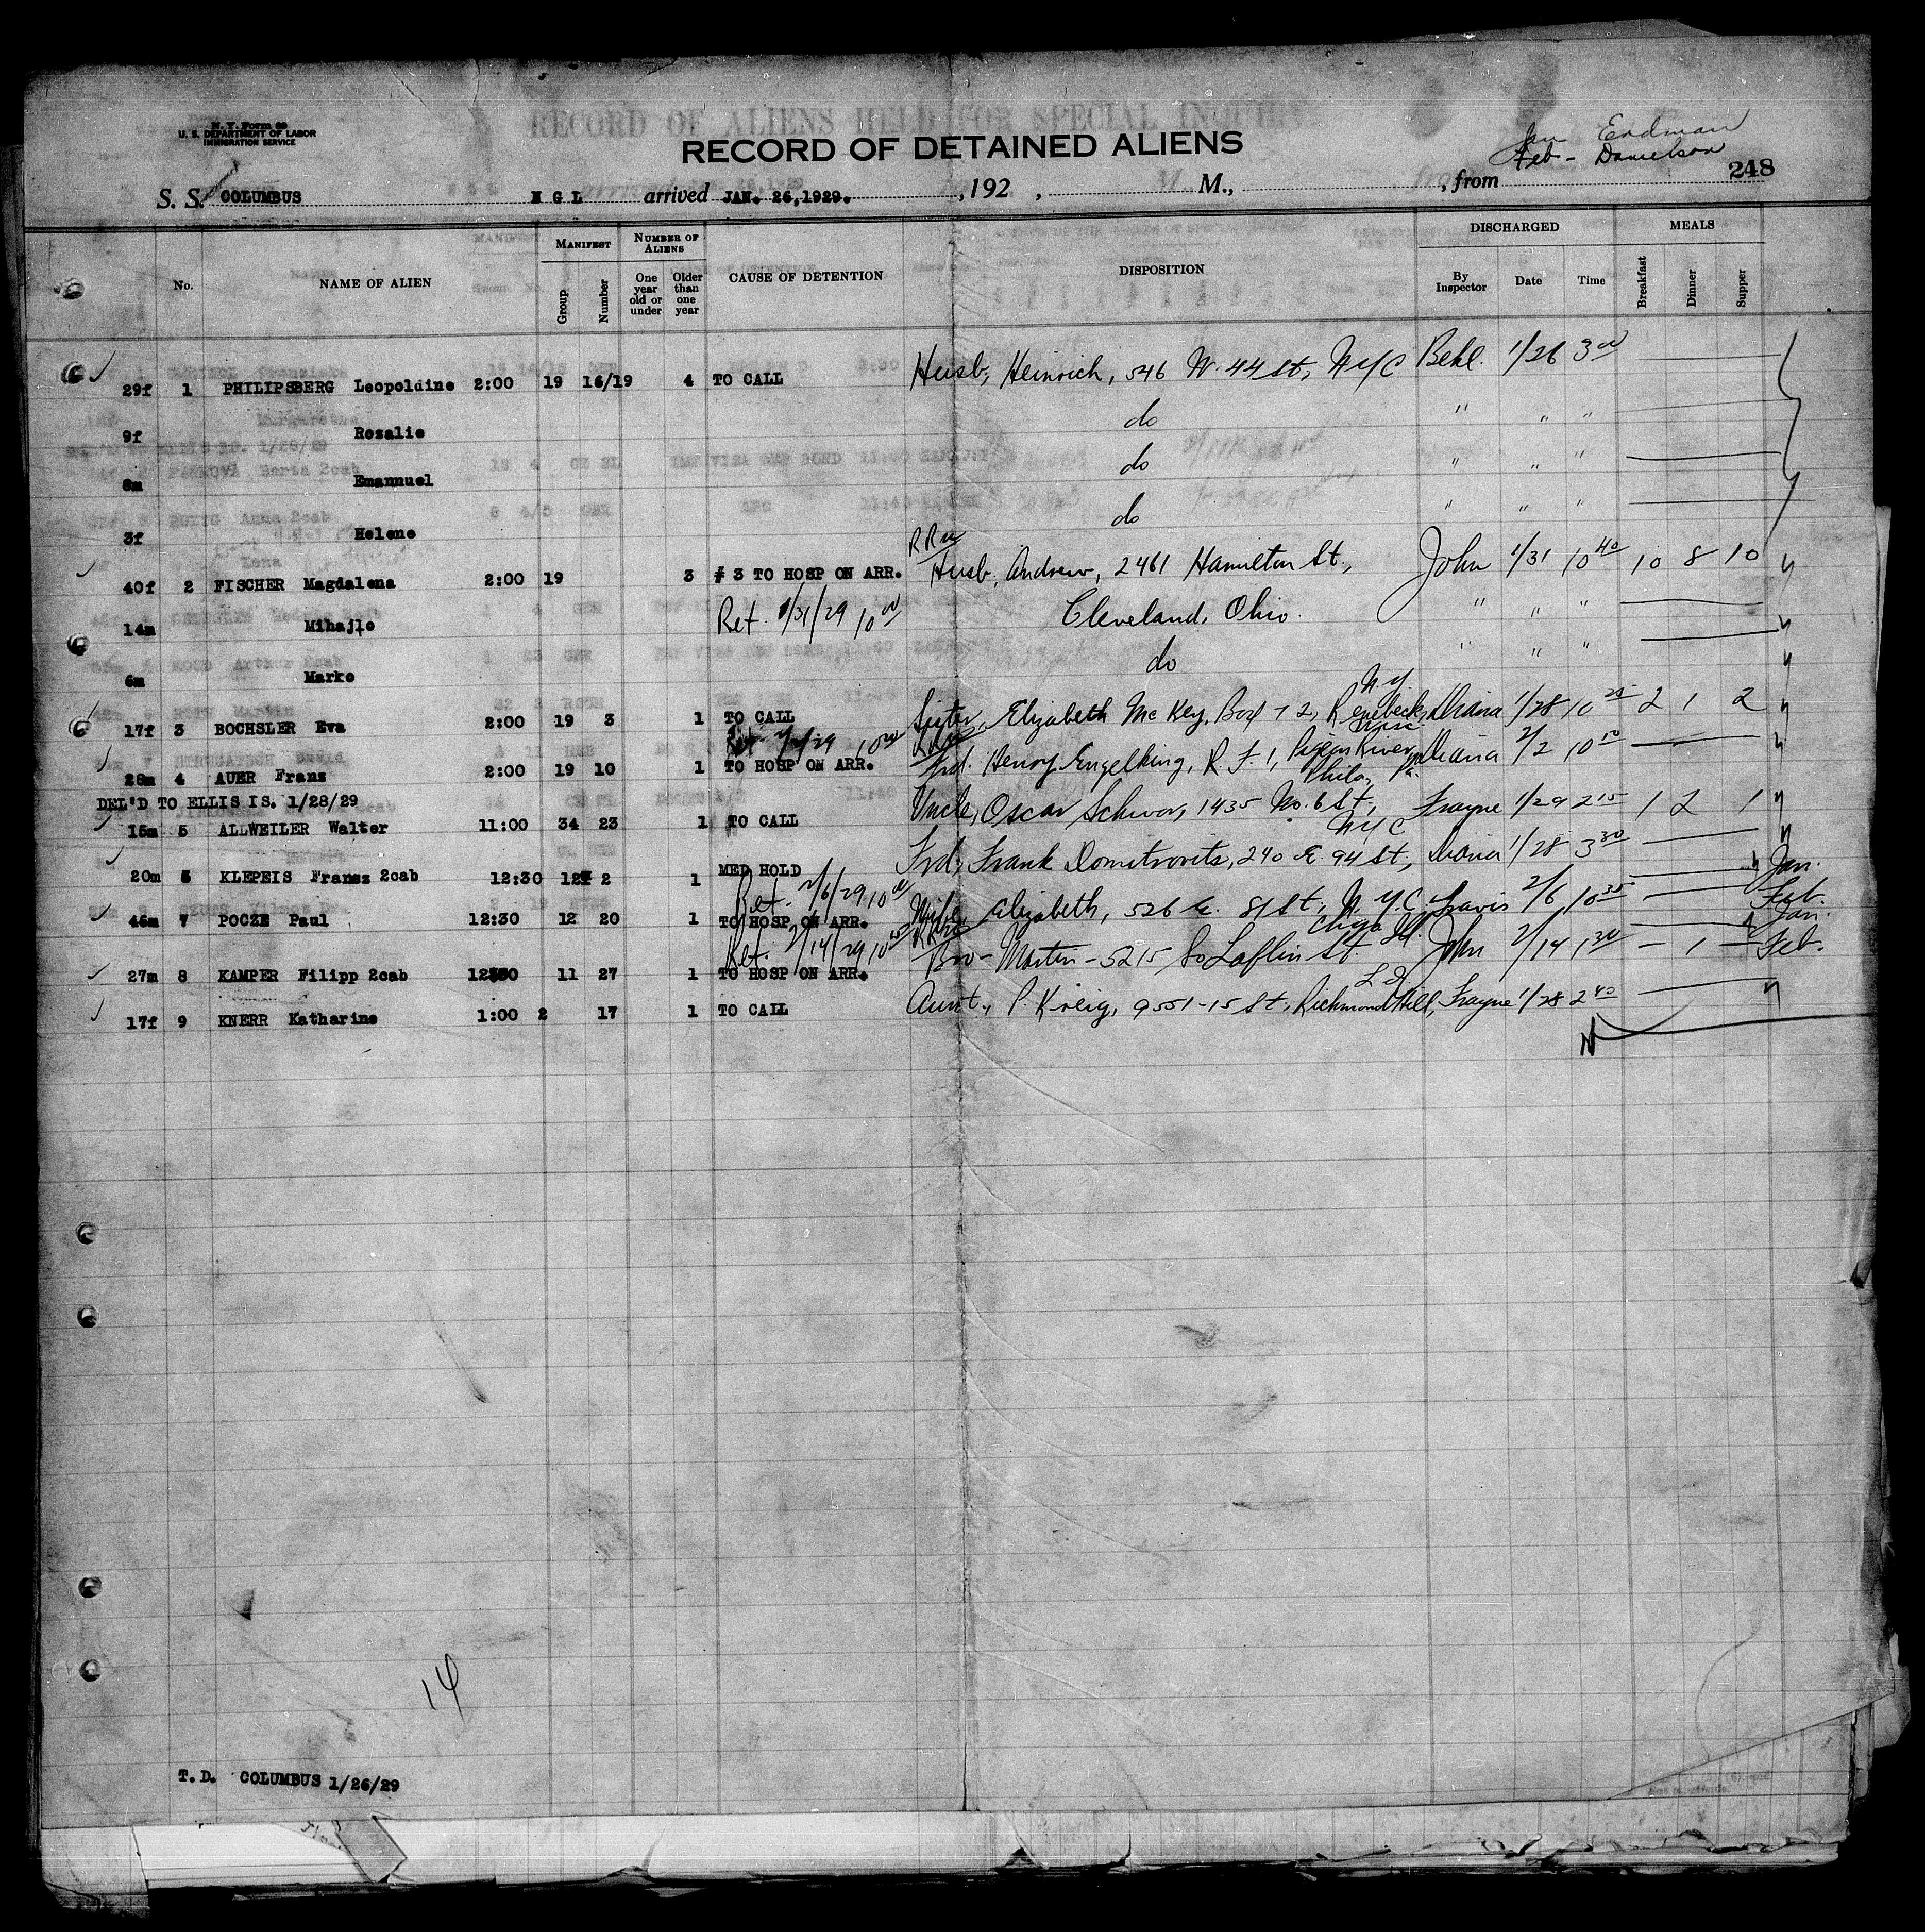 N. Y. Form 99
U. S. DEPARTMENT OF LABOR
IMMIGRATION SERVICE
RECORD OF ALIENS HELD FOR SPECIAL INQUIRY
RECORD OF DETAINED ALIENS
Jan Erdman
Feb - Danielson
248
S. S. COLUMBUS N G L arrived JAN. 26,1929. , 192 , M., , from
No. NAME OF ALIEN MANIFEST Group Number NUMBER OF ALIENS One year old or under Older than one year CAUSE OF DETENTION DISPOSITION DISCHARGED By Inspector Date Time MEALS Breakfast Dinner Supper
29f 1 PHILIPSBERG Leopoldine 2:00 19 16/19 4 TO CALL Husb, Heinrich, 546 W. 44 St, NYC Behl. 1/26 3 00
9f Rosalie do " " "
8m Emannuel do " " "
3f Helene do " " "
40f 2 FISCHER Magdalena 2:00 19 3 # 3 TO HOSP ON ARR. Husb, Andrew, 2461 Hamilton St., John 1/31 10 40 10 8 10
14m Mihajlo Ret. 1/31/29 10 00 Cleveland, Ohio. " " "
6m Marko do " " "
17f 3 BOCHSLER Eva 2:00 19 3 1 TO CALL Sister, Elizabeth Mc Key, Box 72, N.Y. 1/28 10 25 2 1 2
28m 4 AUER Frans 2:00 19 10 1 TO HOSP ON ARR. Frd. Henry Engelking, R. F. 1, Pigeon River, 2/2 10 10
DEL'D TO ELLIS IS. 1/28/29
15m 5 ALLWEILER Walter 11:00 34 23 1 TO CALL Uncle, Oscar Schwar, 1435 No. 6 St, Phila, Pa. Frayne 1/29 2 15 1 2 1
20m 5 KLEPEIS Fransz 2cab 12:30 12 2 1 MED HOLD Frd, Frank Domitrovits, 240 E. 94 St, NYC 1/28 3 30
Jan.
46m 7 POCZE Paul 12:30 12 20 1 TO HOSP ON ARR. Ret. 2/6/29 10 00 Wife, Elizabeth, 526 E. 81 St, N.Y.C. Travis 2/6 10 35 Feb.
Jan.
27m 8 KAMPER Filipp 2cab 1 11 27 1 TO HOSP ON ARR. Ret. 2/14/29 Bro - Martin - 5215 So Laflin St. Chgo Ill. John 2/14 1 30 - 1 - Feb.
17f 9 KNERR Katharine 1:00 2 17 1 TO CALL Aunt, P. Kreig, 9551-15 St, Richmond Hill, L I Frayne 1/28 2 40
14
T.D. COLUMBUS 1/26/29